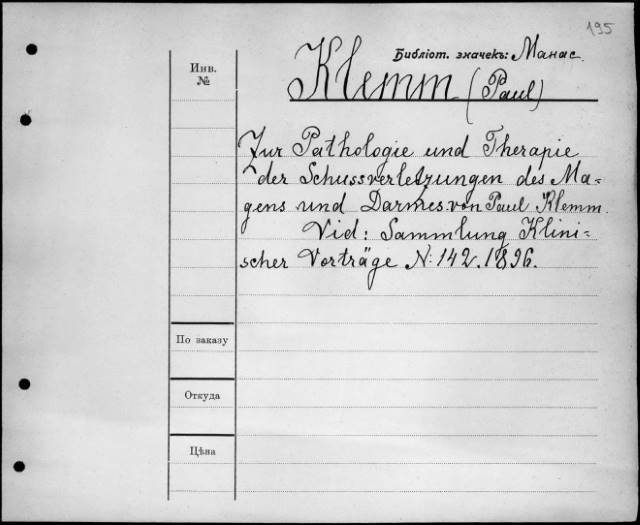 195
Библіот. значекъ: Манас.
Инв.
№
Klemm (Paul)
Zur Pathologie und Therapie
der Schussverletzungen des Ma=
gens und Darmes. von Paul Klemm.
Vid: Sammlung Klini=
scher Vorträge N: 142. 1896.
По заказу
Откуда
Цѣна